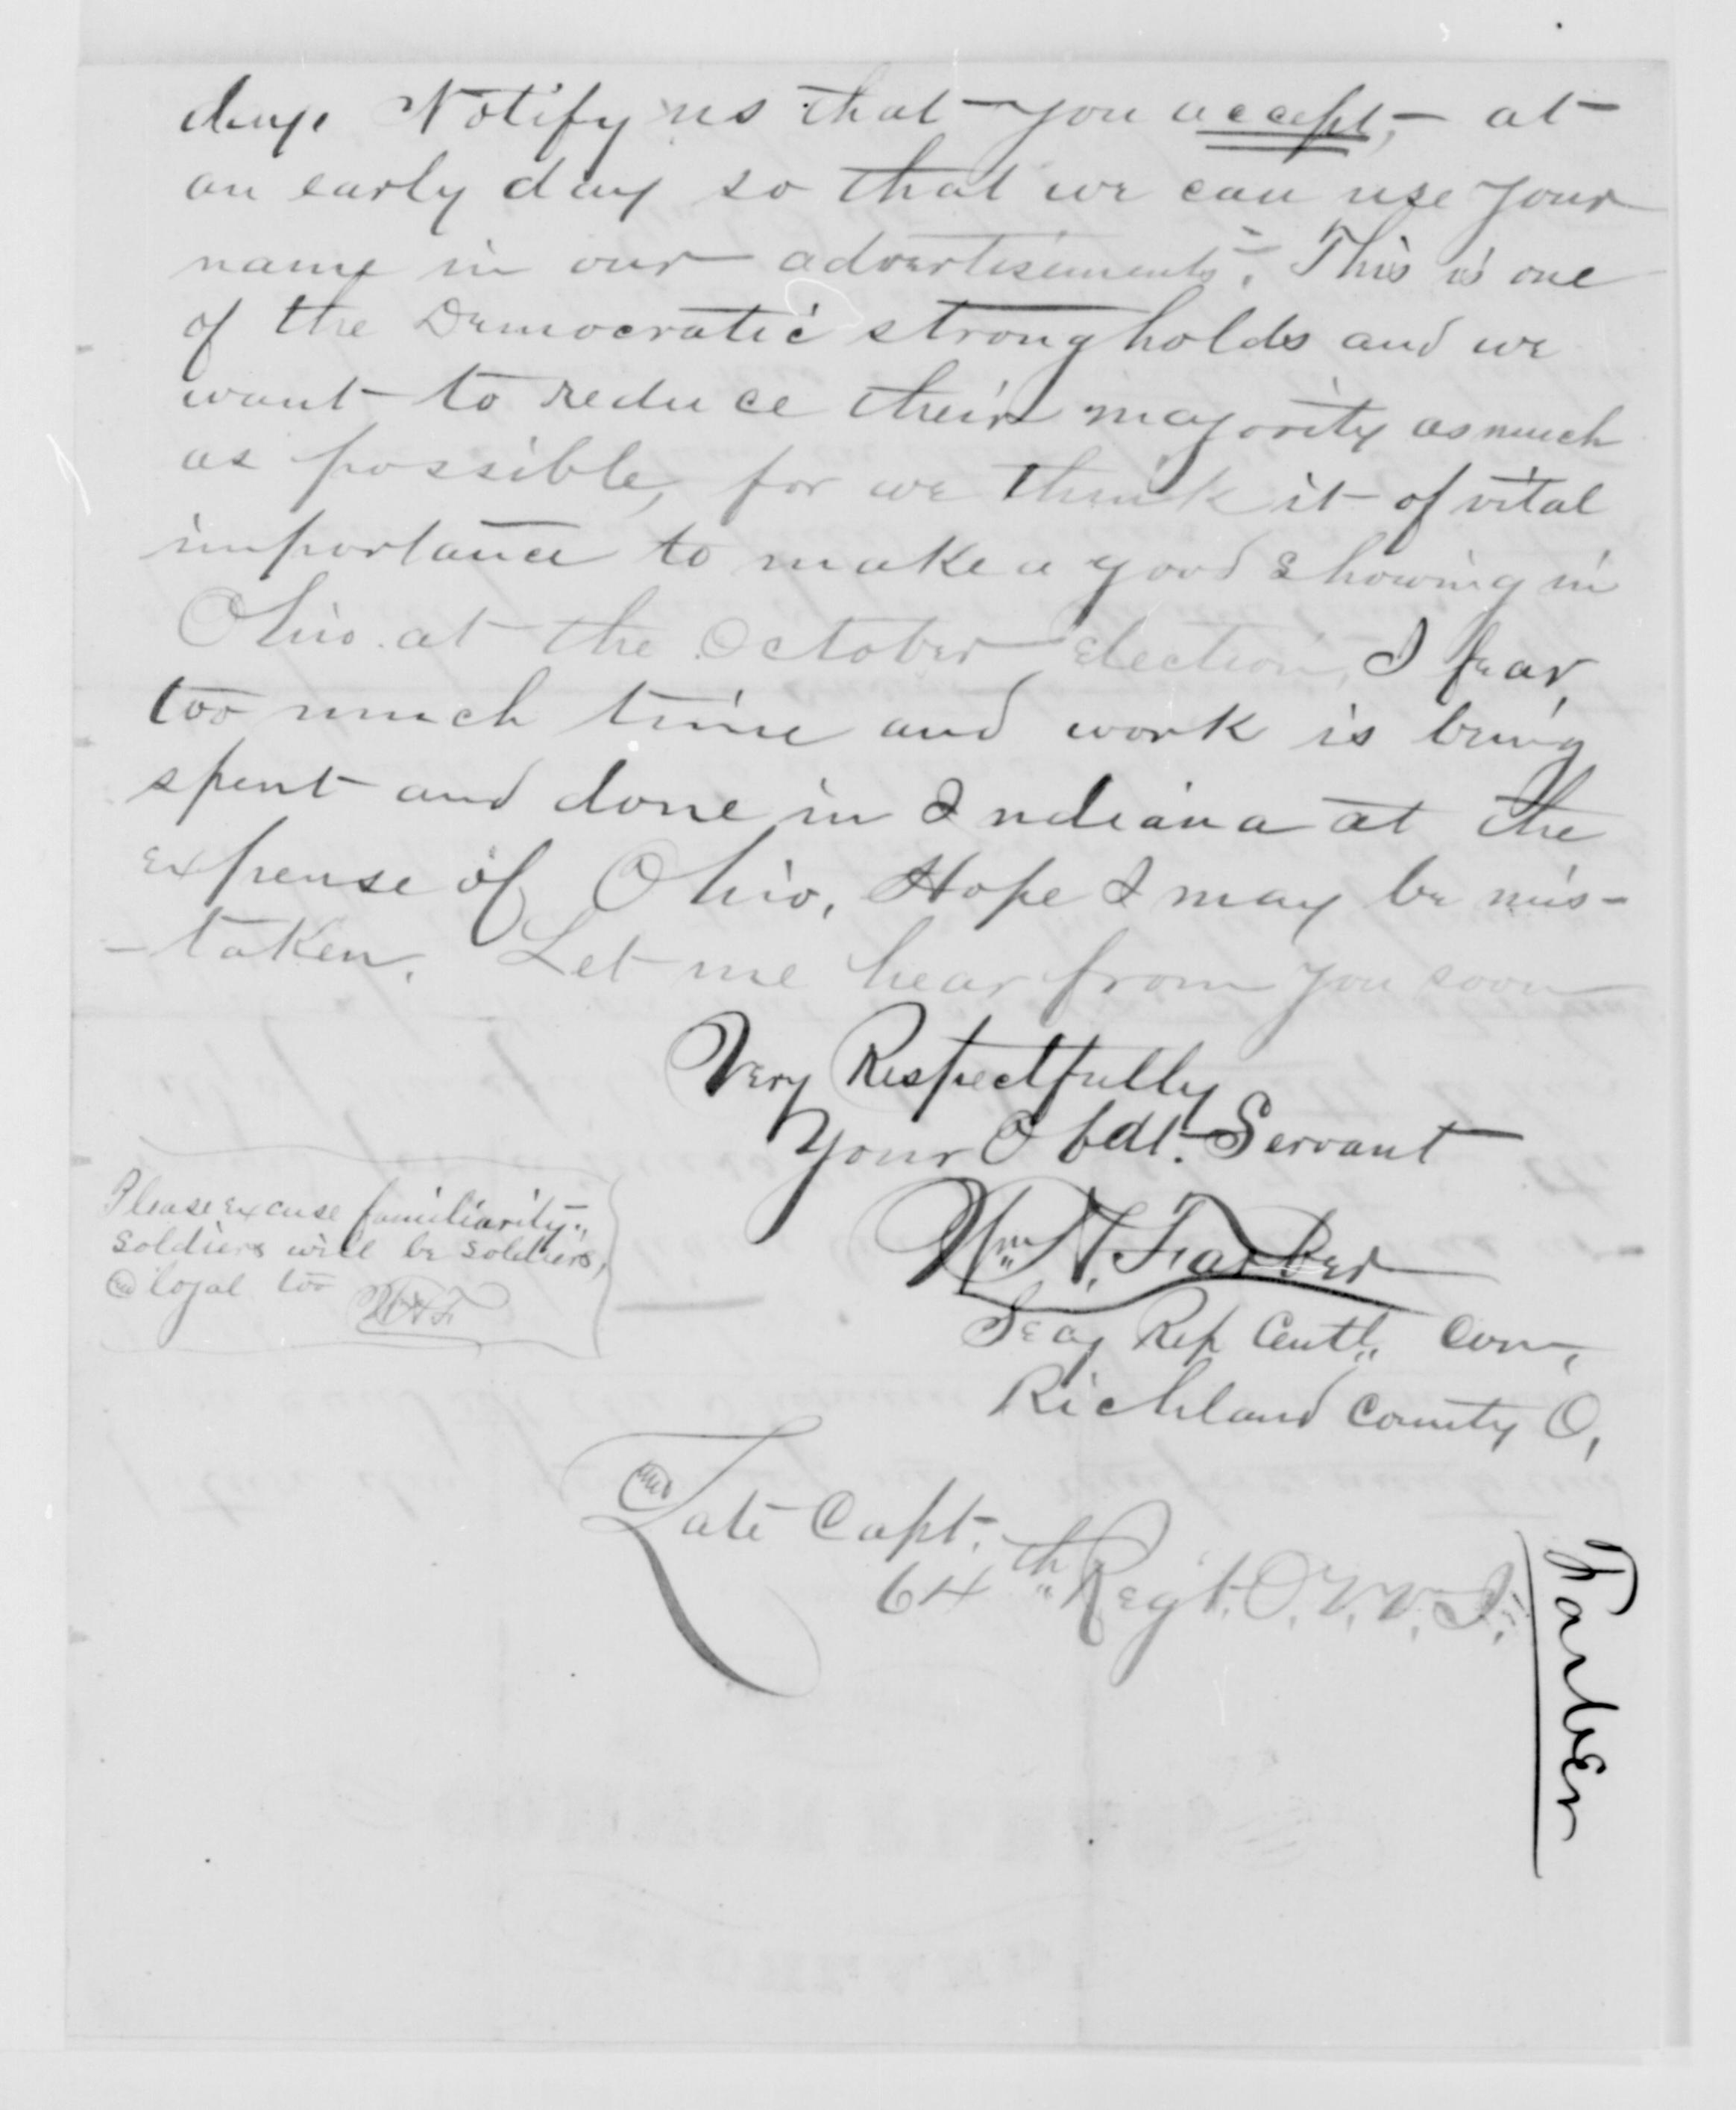 day. Notify us that you accept, at
an early day so that we can use your
name in our advertisements. This is one
of the Democratic strongholds and we
want to reduce their majority as much
as possible, for we think it of vital
importance to make a good showing in
Ohio at the October election, I fear,
too much time and work is being
spent and done in Indiana at the
expense of Ohio, Hope I may be mis-
-taken. Let me hear from you soon
Very Respectfully
Your Obdt. Servant
Wm N. Farber
Secy Rep Centl. Com,
Richland County O,
Please excuse familiarity.
soldiers will be soldiers,
and loyal too
W.N.F.
and
Late Capt.
64th Regt. O.V.V.I.
Farber